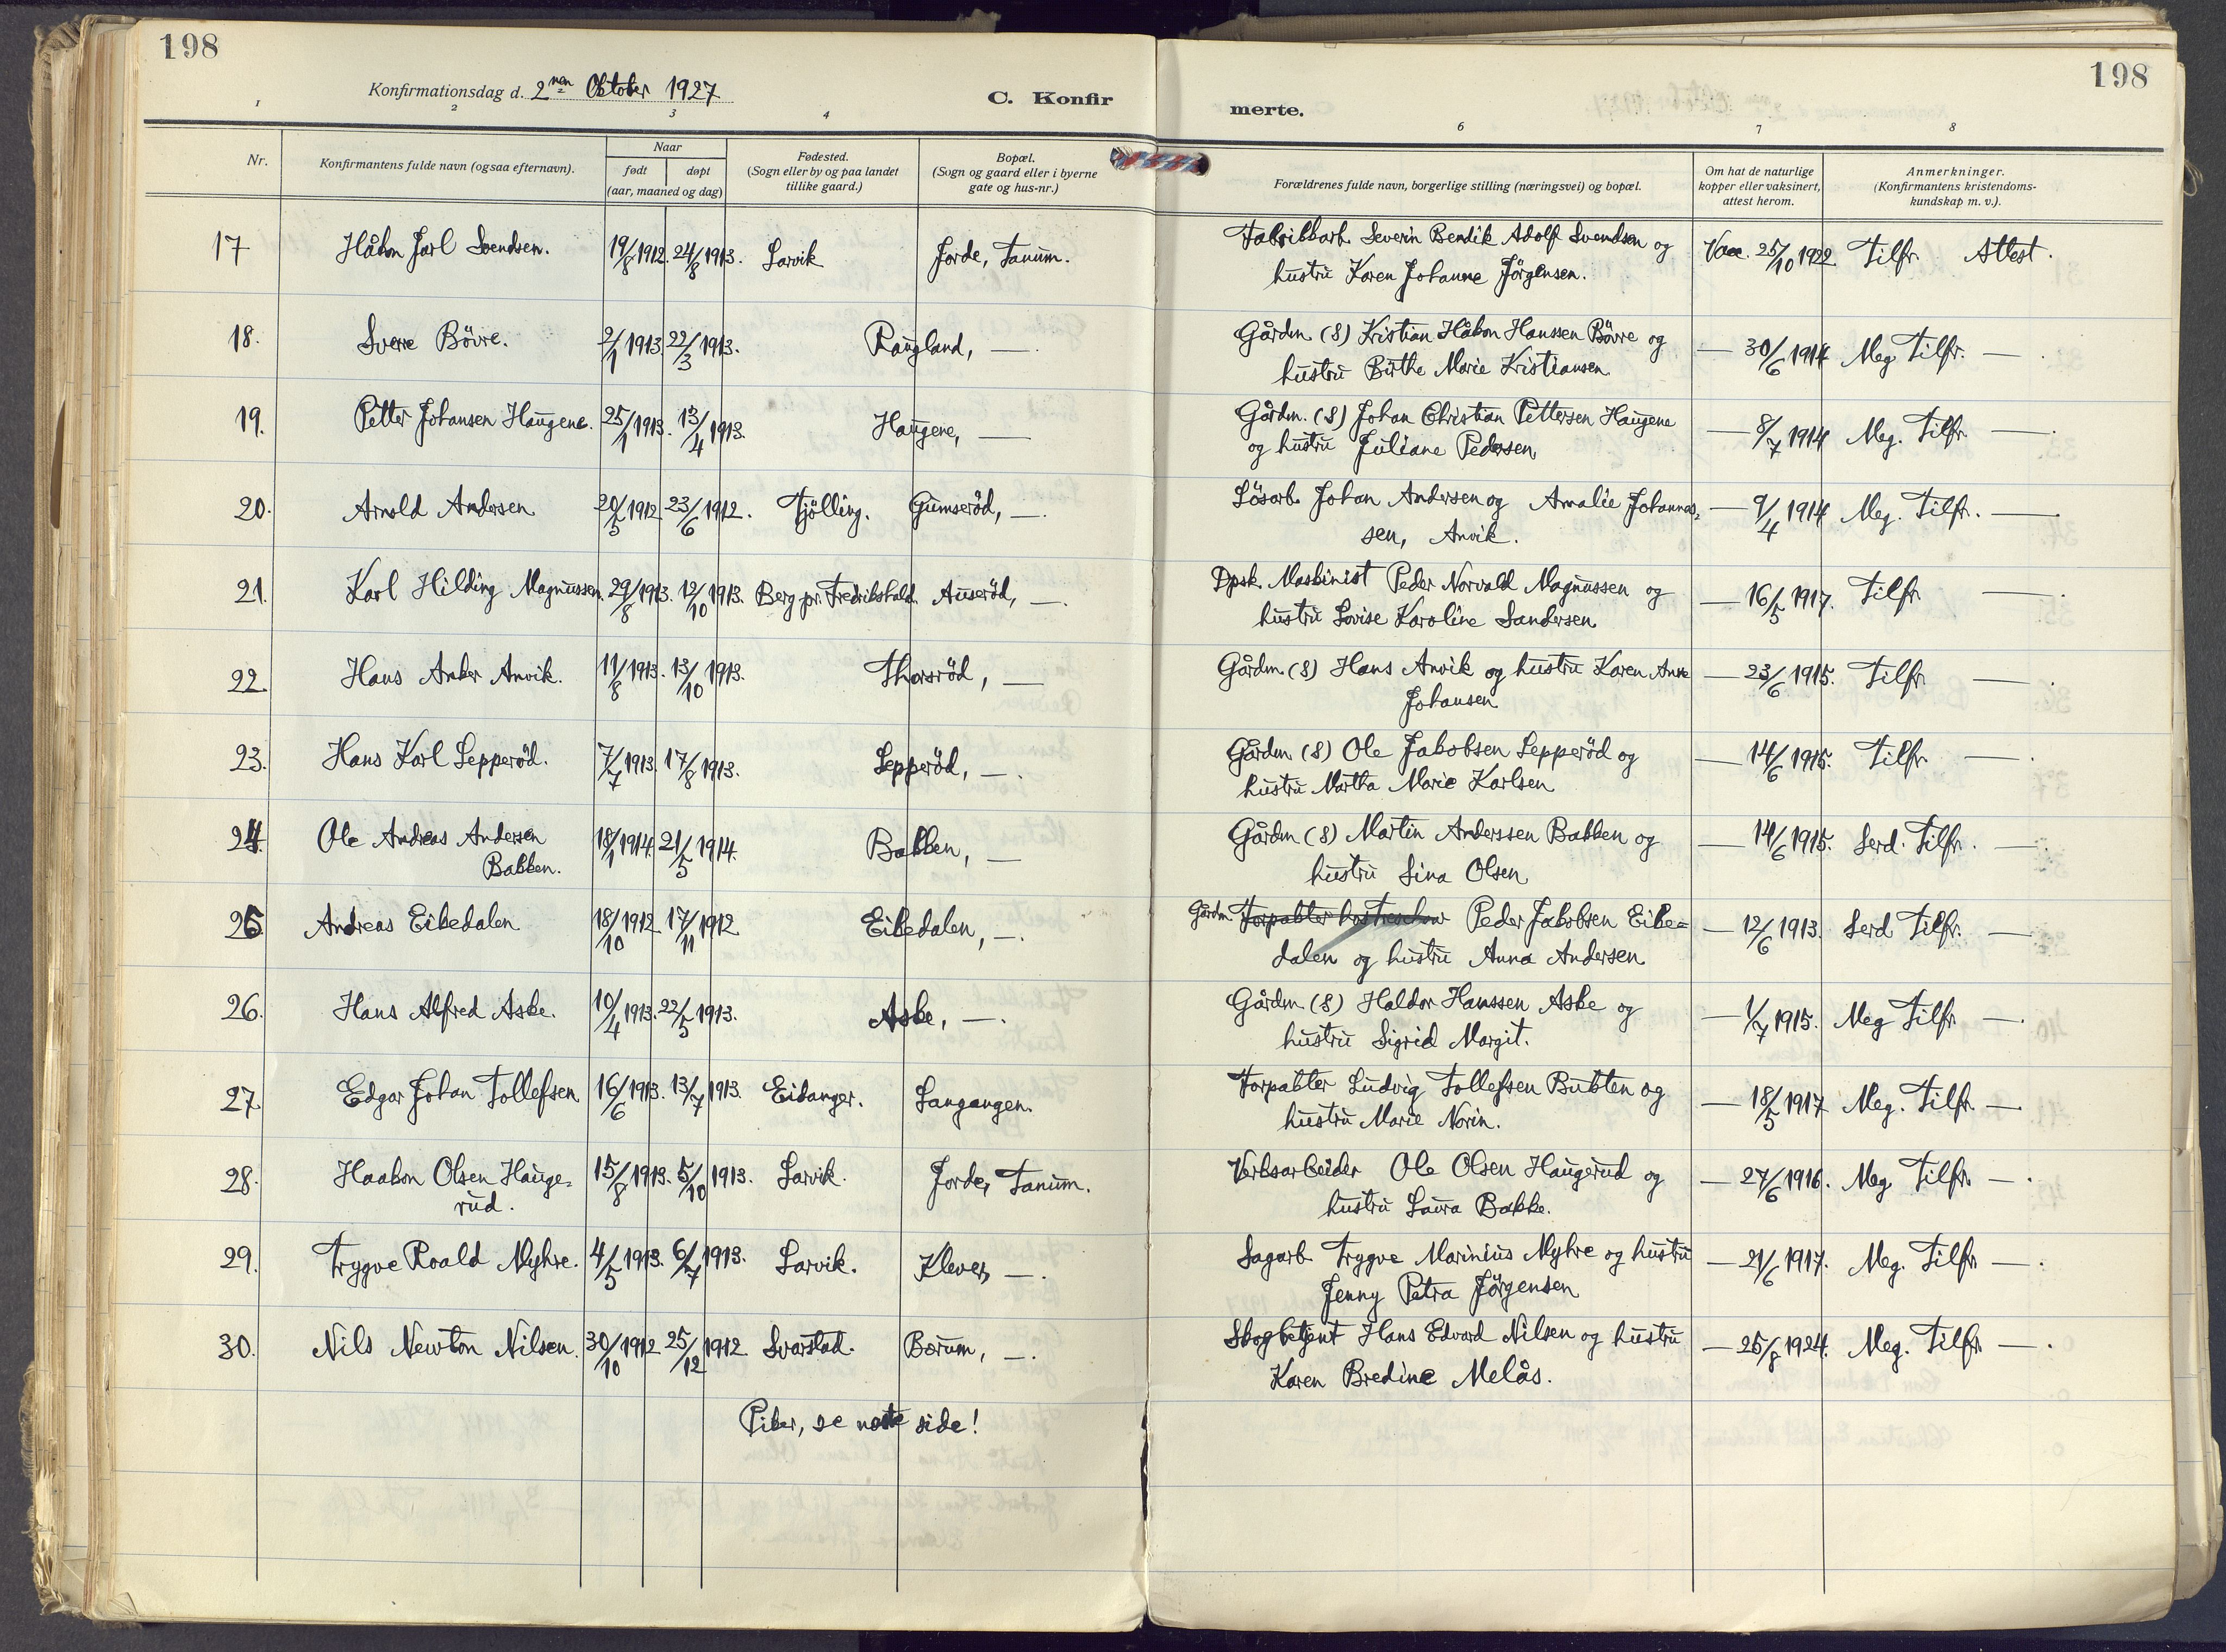 198
198
Konfirmationsdag d. 2nen Oktober 1927
C. Konfirmerte.
1 2 3 4 6 7 8
Nr.
Konfirmantens fulde navn (ogsaa efternavn).
Naar
født døpt
(aar, maaned og dag)
Fødested.
(Sogn eller by og paa landet
tillike gaard.)
Bopæl.
(Sogn og gaard eller i byerne
gate og hus-nr.)
Forældrenes fulde navn, borgerlige stilling (næringsvei) og bopæl.
Om hat de naturlige
kopper eller vaksinert,
attest herom.
Anmerkninger.
(Konfirmantens kristendoms-
kundskap m. v.).
17 Håkon Jarl Svendsen. 19/8 1912. 24/8 1913. Larvik Jorde, Tanum. Fabrikkarb. Severin Bendik Adolf Svendsen og Vacc. 25/10 1922 Tilfr. Attest.
hustru Karen Johanne Jörgensen.
18. Sverre Bövre. 2/1 1913. 22/3 1913. Raugland, —. Gårdm. (S) Kristian Håkon Hanssen Bövre og — 30/6 1914 Meg Tilfr. —.
hustru Birthe Marie Kristiansen
19. Petter Johansen Haugene. 25/1 1913. 13/4 1913. Haugene, — Gårdm. (S) Johan Christian Pettersen Haugene — 8/7 1914 Meg. Tilfr. —.
og hustru Juliane Pedersen
20. Arnold Andersen 20/5 1912. 23/6 1912. Tjölling. Gumseröd, —. Lösarb. Johan Andersen og Amalie Johannes- — 9/4 1914 Meg. Tilfr. —
sen, Anvik.
21. Karl Hilding Magnussen. 29/8 1913. 12/10 1913. Berg pr. Fredrikshald. Auseröd, —. Dpsk. Maskinist Peder Norvald Magnussen og — 16/5 1917. Tilfr. —.
hustru Lovise Karoline Sandersen
22. Hans Anker Anvik. 11/8 1913. 13/10 1913. Thorsröd, — Gårdm. (S) Hans Anvik og hustru Karen Anne — 23/6 1915. Tilfr. —.
Johansen
23. Hans Karl Lepperöd. 7/7 1913. 17/8 1913. Lepperöd, —. Gårdm. (S) Ole Jakobsen Lepperöd og — 14/6 1915. Tilfr. —.
hustru Martha Marie Karlsen
24. Ole Andreas Andersen 18/1 1914. 21/5 1914. Bakken, — Gårdm (S) Martin Anderssen Bakken og — 14/6 1915. Serd. Tilfr. —.
Bakken. hustru Sina Olsen
25 Andreas Eikedalen 18/10 1912 17/11 1912 Eikedalen, —. Gårdm. Forpakter Peder Jakobsen Eike- — 12/6 1913. Serd Tilfr. —
dalen og hustru Anna Andersen
26. Hans Alfred Aske. 10/4 1913. 22/5 1913. Aske, —. Gårdm. (S) Haldor Hanssen Aske og — 1/7 1915. Meg Tilfr. —.
hustru Sigrid Margit.
27. Edgar Johan Tollefsen 16/6 1913. 13/7 1913. Eidanger. Langangen. Forpakter Ludvig Tollefsen Bukten og — 18/5 1917 Meg. Tilfr. —.
hustru Marie Norin.
28. Haakon Olsen Hauge- 15/8 1913. 5/10 1913. Larvik. Jorde, Tanum. Verksarbeider Ole Olsen Haugerud og — 27/6 1916. Meg Tilfr. —.
rud. hustru Laura Bakke.
29. Trygve Roald Myhre. 4/5 1913. 6/7 1913. Larvik. Klever, —. Sagarb. Trygve Marinius Myhre og hustru — 21/6 1917. Meg. Tilfr. —.
Jenny Petra Jörgensen
30. Nils Newton Nilsen. 30/10 1912 25/12 1912 Svarstad. Bærum, —. Skogbetjent Hans Edvard Nilsen og hustru — 25/8 1924. Meg. Tilfr. —.
Karen Bredine Melås.
Piker, se næste side!